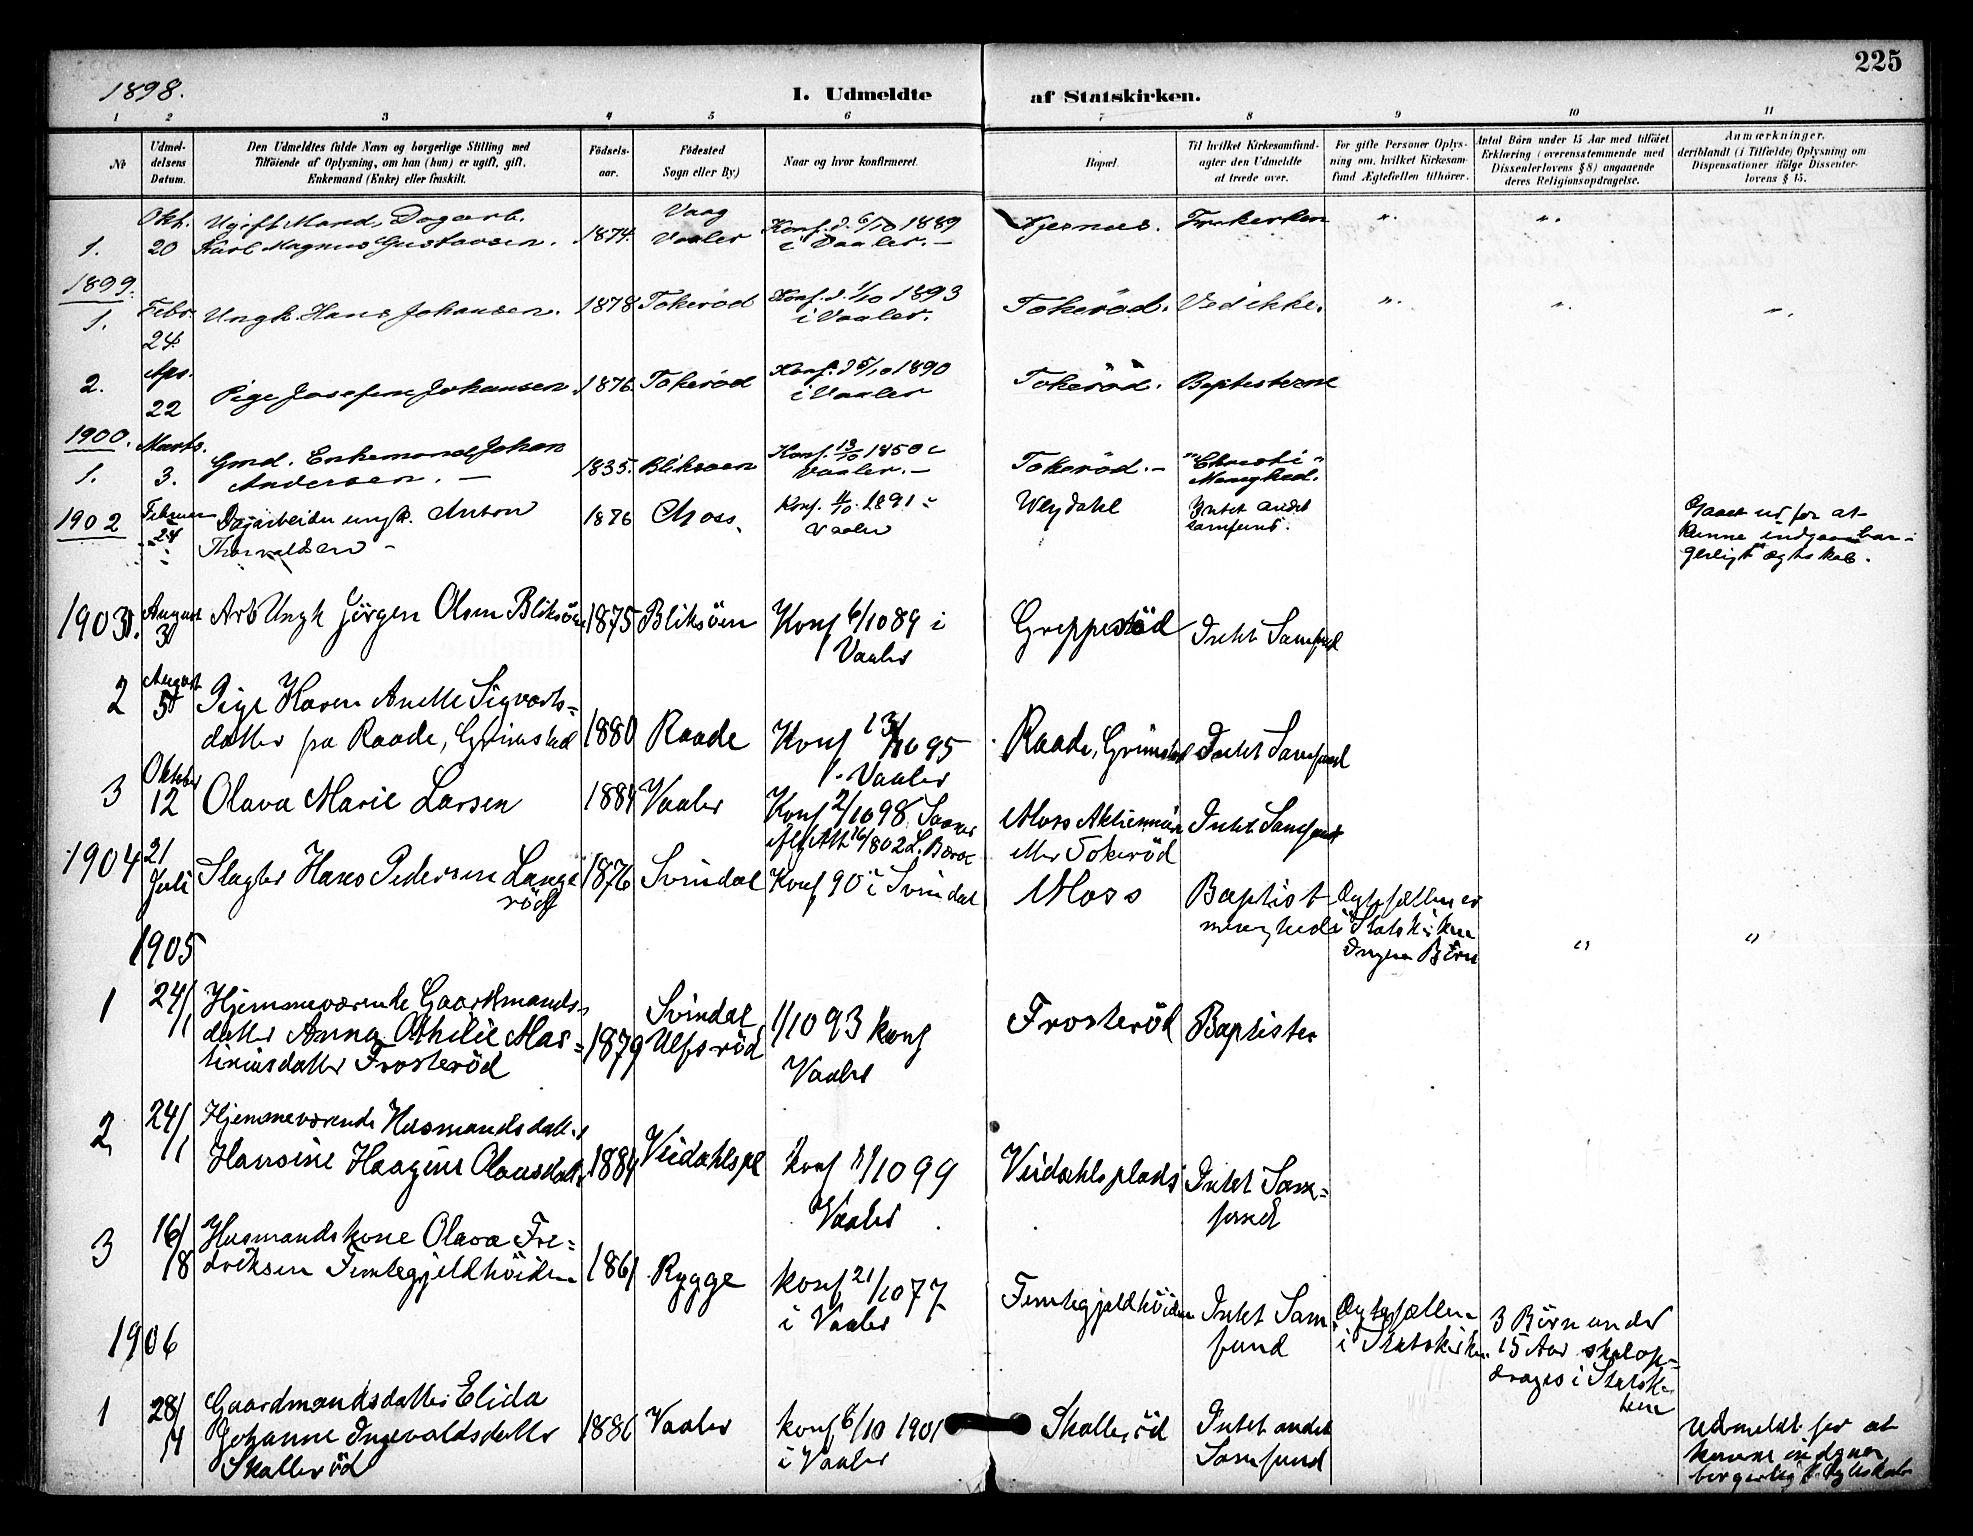 225
1898.
I. Udmeldte af Statskirken.
1 2 3 4 5 6 7 8 9 10 11
No
Udmel-
delsens
Datum.
Den Udmeldtes fulde Navn og borgerlige Stilling med
Tilföiende af Oplysning, om han (hun) er ugift, gift,
Enkemand (Enke) eller fraskilt.
Födsels-
aar.
Födested
Sogn eller By)
Naar og hvor konfirmeret.
Bopæl.
Til hvilket Kirkesamfund-
agter den Udmeldte
at træde over.
For gifte Personer Oplys-
ning om, hvilket Kirkesam-
fund Ægtefællen tilhörer.
Antal Börn under 15 Aar med tilföiet
Erklæring (overensstemmende med
Dissenterlovens § 8) angaaende
deres Religionsopdragelse.
Anmærkninger,
deriblandt (i Tilfælde) Oplysning om
Dispensationer ifölge Dissenter-
lovens § 15.
1.
Okt.
20
Ugift Mand, Dagarb.
Karl Magnus Gustavsen.
1874.
Vaag
Vaaler
Konf. d. 6/10 1889
i Vaaler. –
Kjernes.
Frikirken
".
".
1899.
1.
Febr.
24
Ungk. Hans Johansen.
1878
Tokeröd
Konf. d. 1/10 1893
i Vaaler.
Tokeröd.
Ved ikke.
".
".
".
2.
Apr.
22
Pige Josefine Johansen
1876.
Tokeröd
Konf. d 5/10 1890
i Vaaler
Tokeröd.
Baptisterne
1900.
1.
Marts.
3.
Gmd. Enkemand Johan
Andersen. –
1835.
Bliksöen
Konf. 13/10 1850 i
Vaaler. –
Tokeröd. –
"Christi"
Menighed.
1902
Februar
24
Dagarbeider ungk. Anton
Thorvaldsen –
1876
Moss.
Konf. 4/10. 1891 i
Vaaler
Vejdahl
Intet andet
samfund.
Gaaet ud for at
kunne indgaa bor-
gerligt ægteskab.
1903 1.
August
3
Arb Ungk Jörgen Olsen Bliksöen
1875
Bliksöen
Konf 6/10 89 i
Vaaler
Greppestöd
Intet Samfund
2
August
5
Pige Karen Anette Sigvarts-
datter fra Raade, Grimstad
1880
Raade
Konf 13/10 95
i Vaaler
Raade, Grimstad
Intet Samfund
3
Oktober
12
Olava Marie Larsen
1884
Vaaler
Konf 2/10 98 Saaner
iflg Att 26/8 02 L. Barox
Moss Aktiemölle
eller Tokeröd
Intet Samfund
1904
21
Juli
Slagter Hans Pedersen Lange
röd
1876
Svindal
Konf 90 i Svindal
Moss
Baptist
menighed
Ægtefællen er
i Statskirken
Ingen Börn
"
"
1905
1
24/1
Hjemmeværende Gaardmands-
datter Anna Othilie Mar-
tiniusdatter Frosteröd
1879
Svindal
Ulfsröd
1/10 93 konf
Vaaler
Frosteröd
Baptister
2
24/1
Hjemmeværende Husmandsdatter
Hansine Haagine Olausdatter
1884
Veidahlspl
konf 1/10 99
Vaaler
Veidahlsplads
Intet Sam-
fund
3
16/8
Husmandskone Olava Fre-
driksen Femtegjeldhöiden
1861
Rygge
konf 21/10 77
i Vaaler
Femtegjeldhöiden
Intet Sam
fund
Ægtefællen
i Statskirken
3 Börn under
15 Aar skal op-
drages i Statskir
ken
1906
1
28/4
Gaardmandsdatter Elida
Johanne Ingevaldsdatter
Skalleröd
1886
Vaaler
konf 6/10 1901
i Vaaler
Skalleröd
Intet andet
Samfund
Udmeldt for at
kunne indgaa
borgerligt Ægteskab